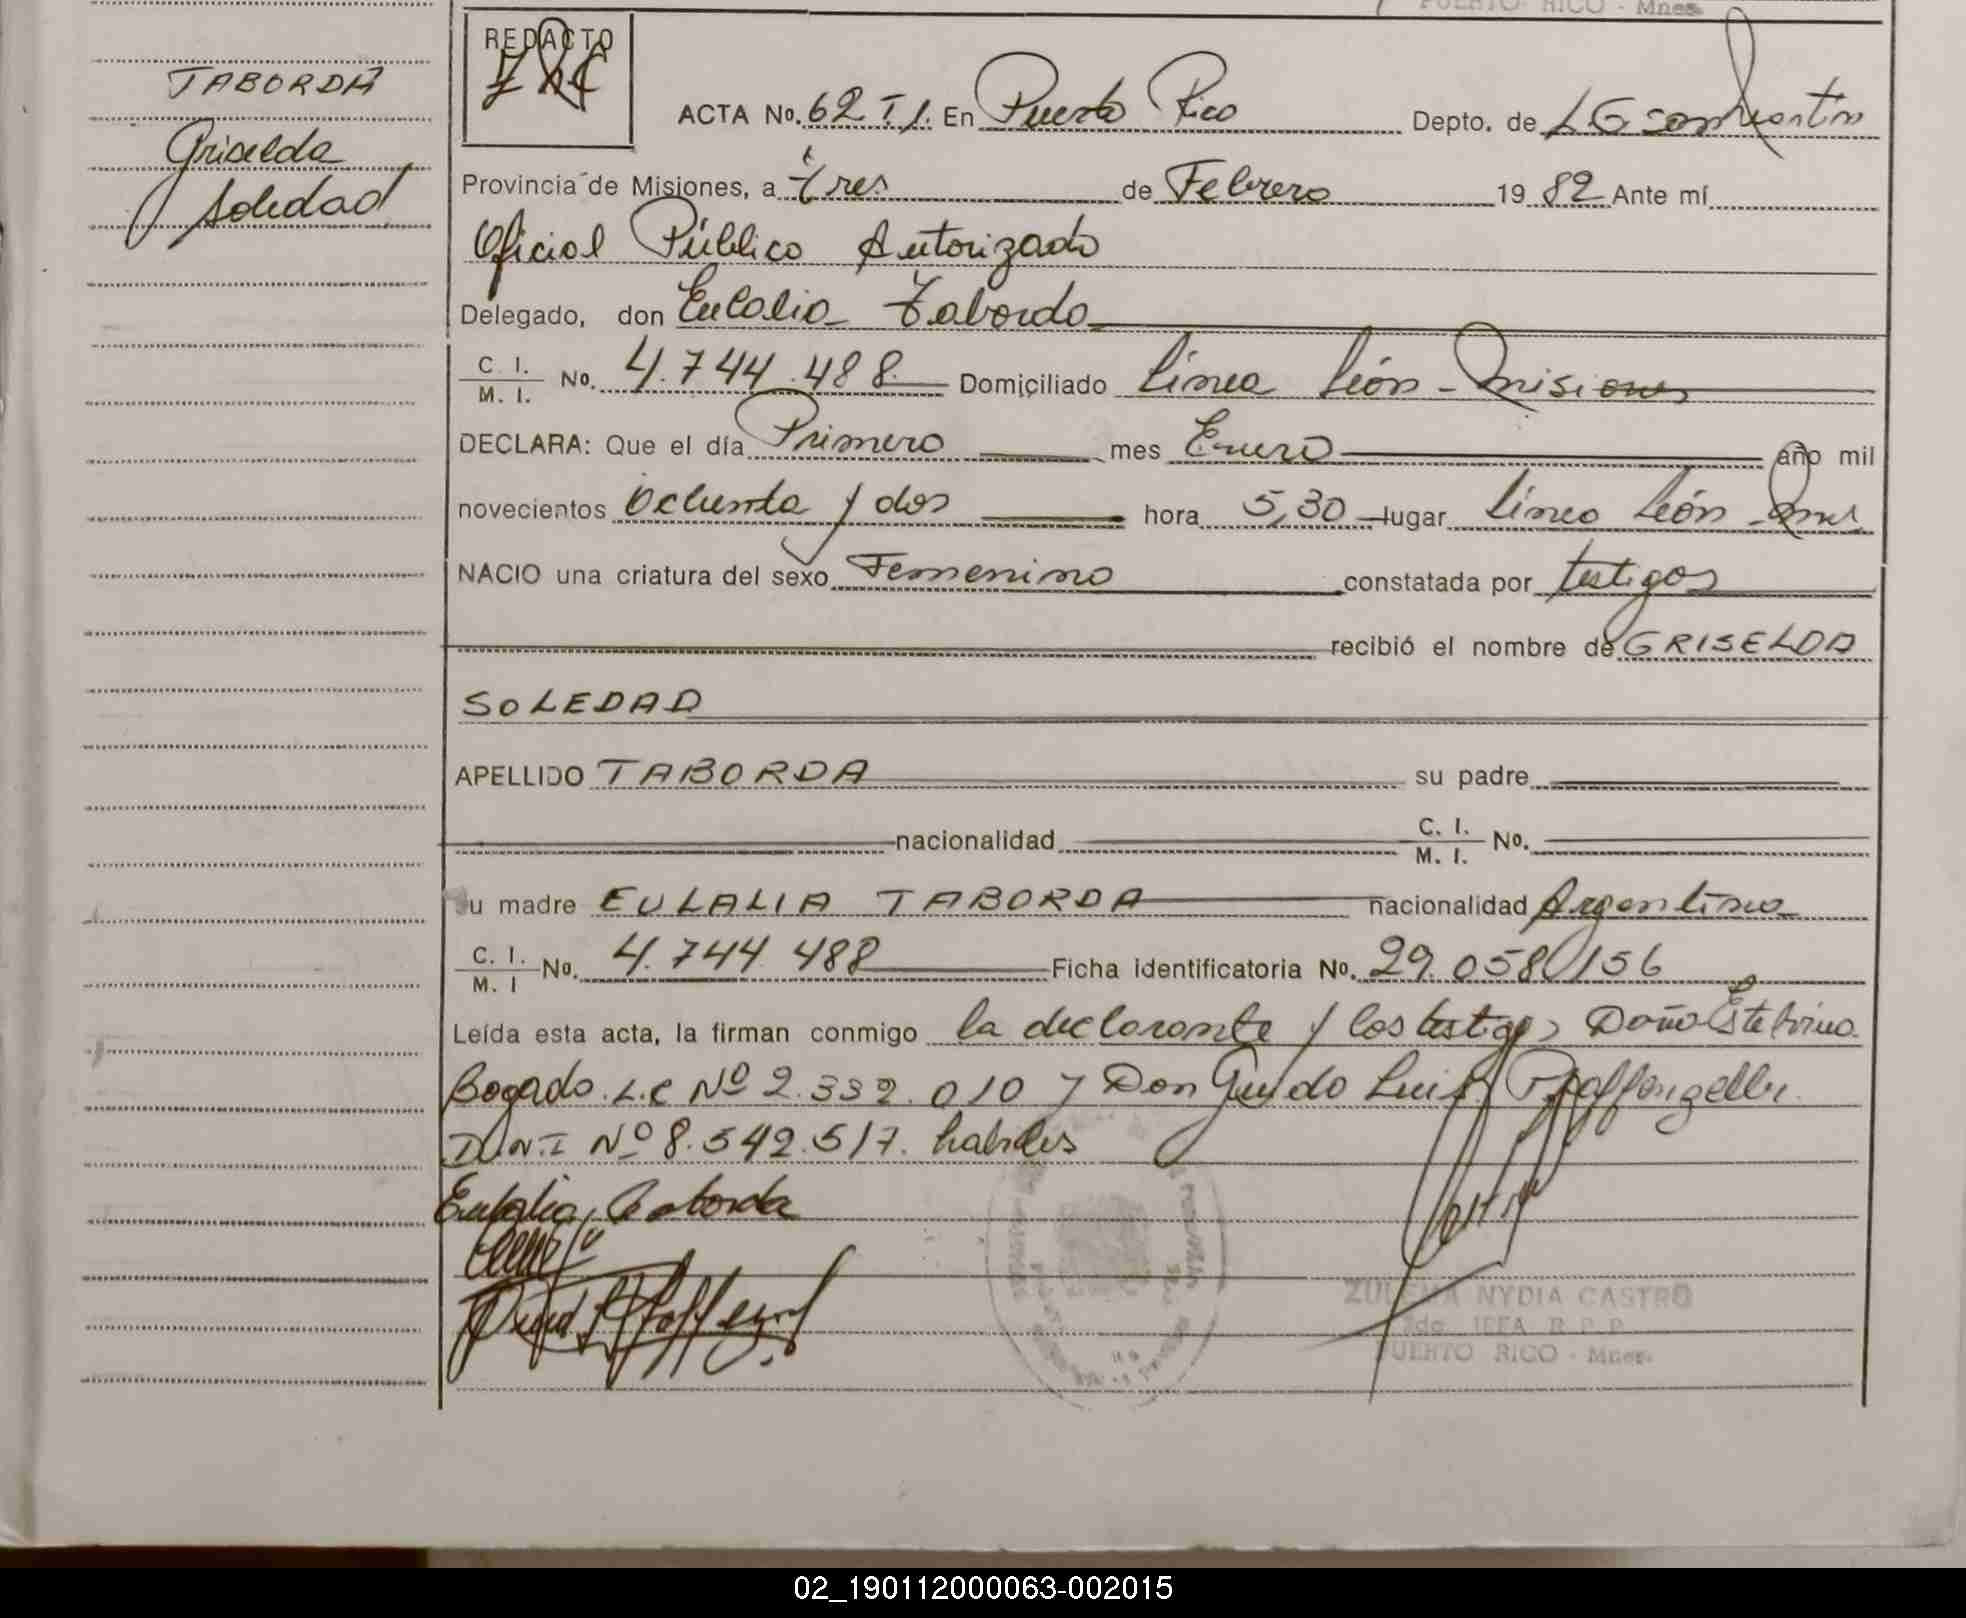 PUERTO RICO - Mnes.
REDACTO
TABORDA
Griselda
Soledad
ACTA No. 62 T I. En Puerto Rico Depto. de L G San Martín
Provincia de Misiones, a tres de Febrero 19 82 Ante mí
Oficial Público Autorizado
Delegado, don Eulalia Taborda
C. I. / M. I. No. 4.744.488 Domiciliado Línea León - Misiones
DECLARA: Que el día Primero mes Enero año mil
novecientos Ochenta y dos hora 5,30 lugar Línea León - Mnes
NACIO una criatura del sexo Femenino constatada por testigos
recibió el nombre de GRISELDA
SOLEDAD
APELLIDO TABORDA su padre
nacionalidad C. I. / M. I. No.
su madre EULALIA TABORDA nacionalidad Argentina
C. I. / M. I No. 4.744 488 Ficha identificatoria No. 29.058.156
Leída esta acta, la firman conmigo la declarante y los testigos Doña Estebina
Bogado L.C Nº 2.332.010 y Don Guido Luis Pfaffenzeller
D.N.I Nº 8.542.517. habiles
Eulalia Taborda
ZULEMA NYDIA CASTRO
2da. JEFA R.P.P.
PUERTO RICO - Mnes.
02_190112000063-002015